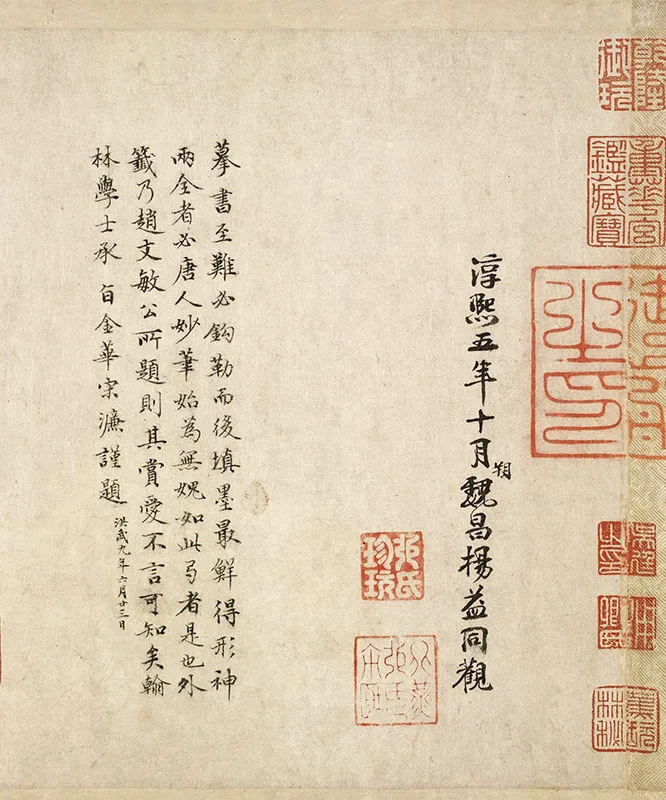 乾隆御玩
重華宮鑑藏寶
淳熙五年十月朔魏昌楊益同觀
張氏珍玩
摹書至難必鉤勒而後填墨最鮮得形神
兩全者必唐人妙筆始為無媿如此弓者是也外
籤乃趙文敏公所題則其賞愛不言可知矣翰
林學士承旨金華宋濂謹題
洪武九年六月廿三日